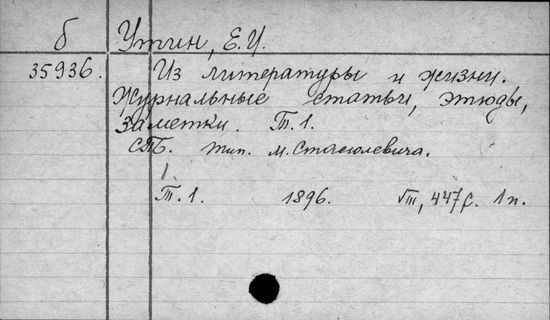 б Утин, Е.И.
35936. Из литературы и жизни.
Журнальные статьи, этюды,
заметки. Т.1.
СПБ. тип. М. Стасюлевича.
1.
Т.1. 1896. VIII, 447 с. 1 п.